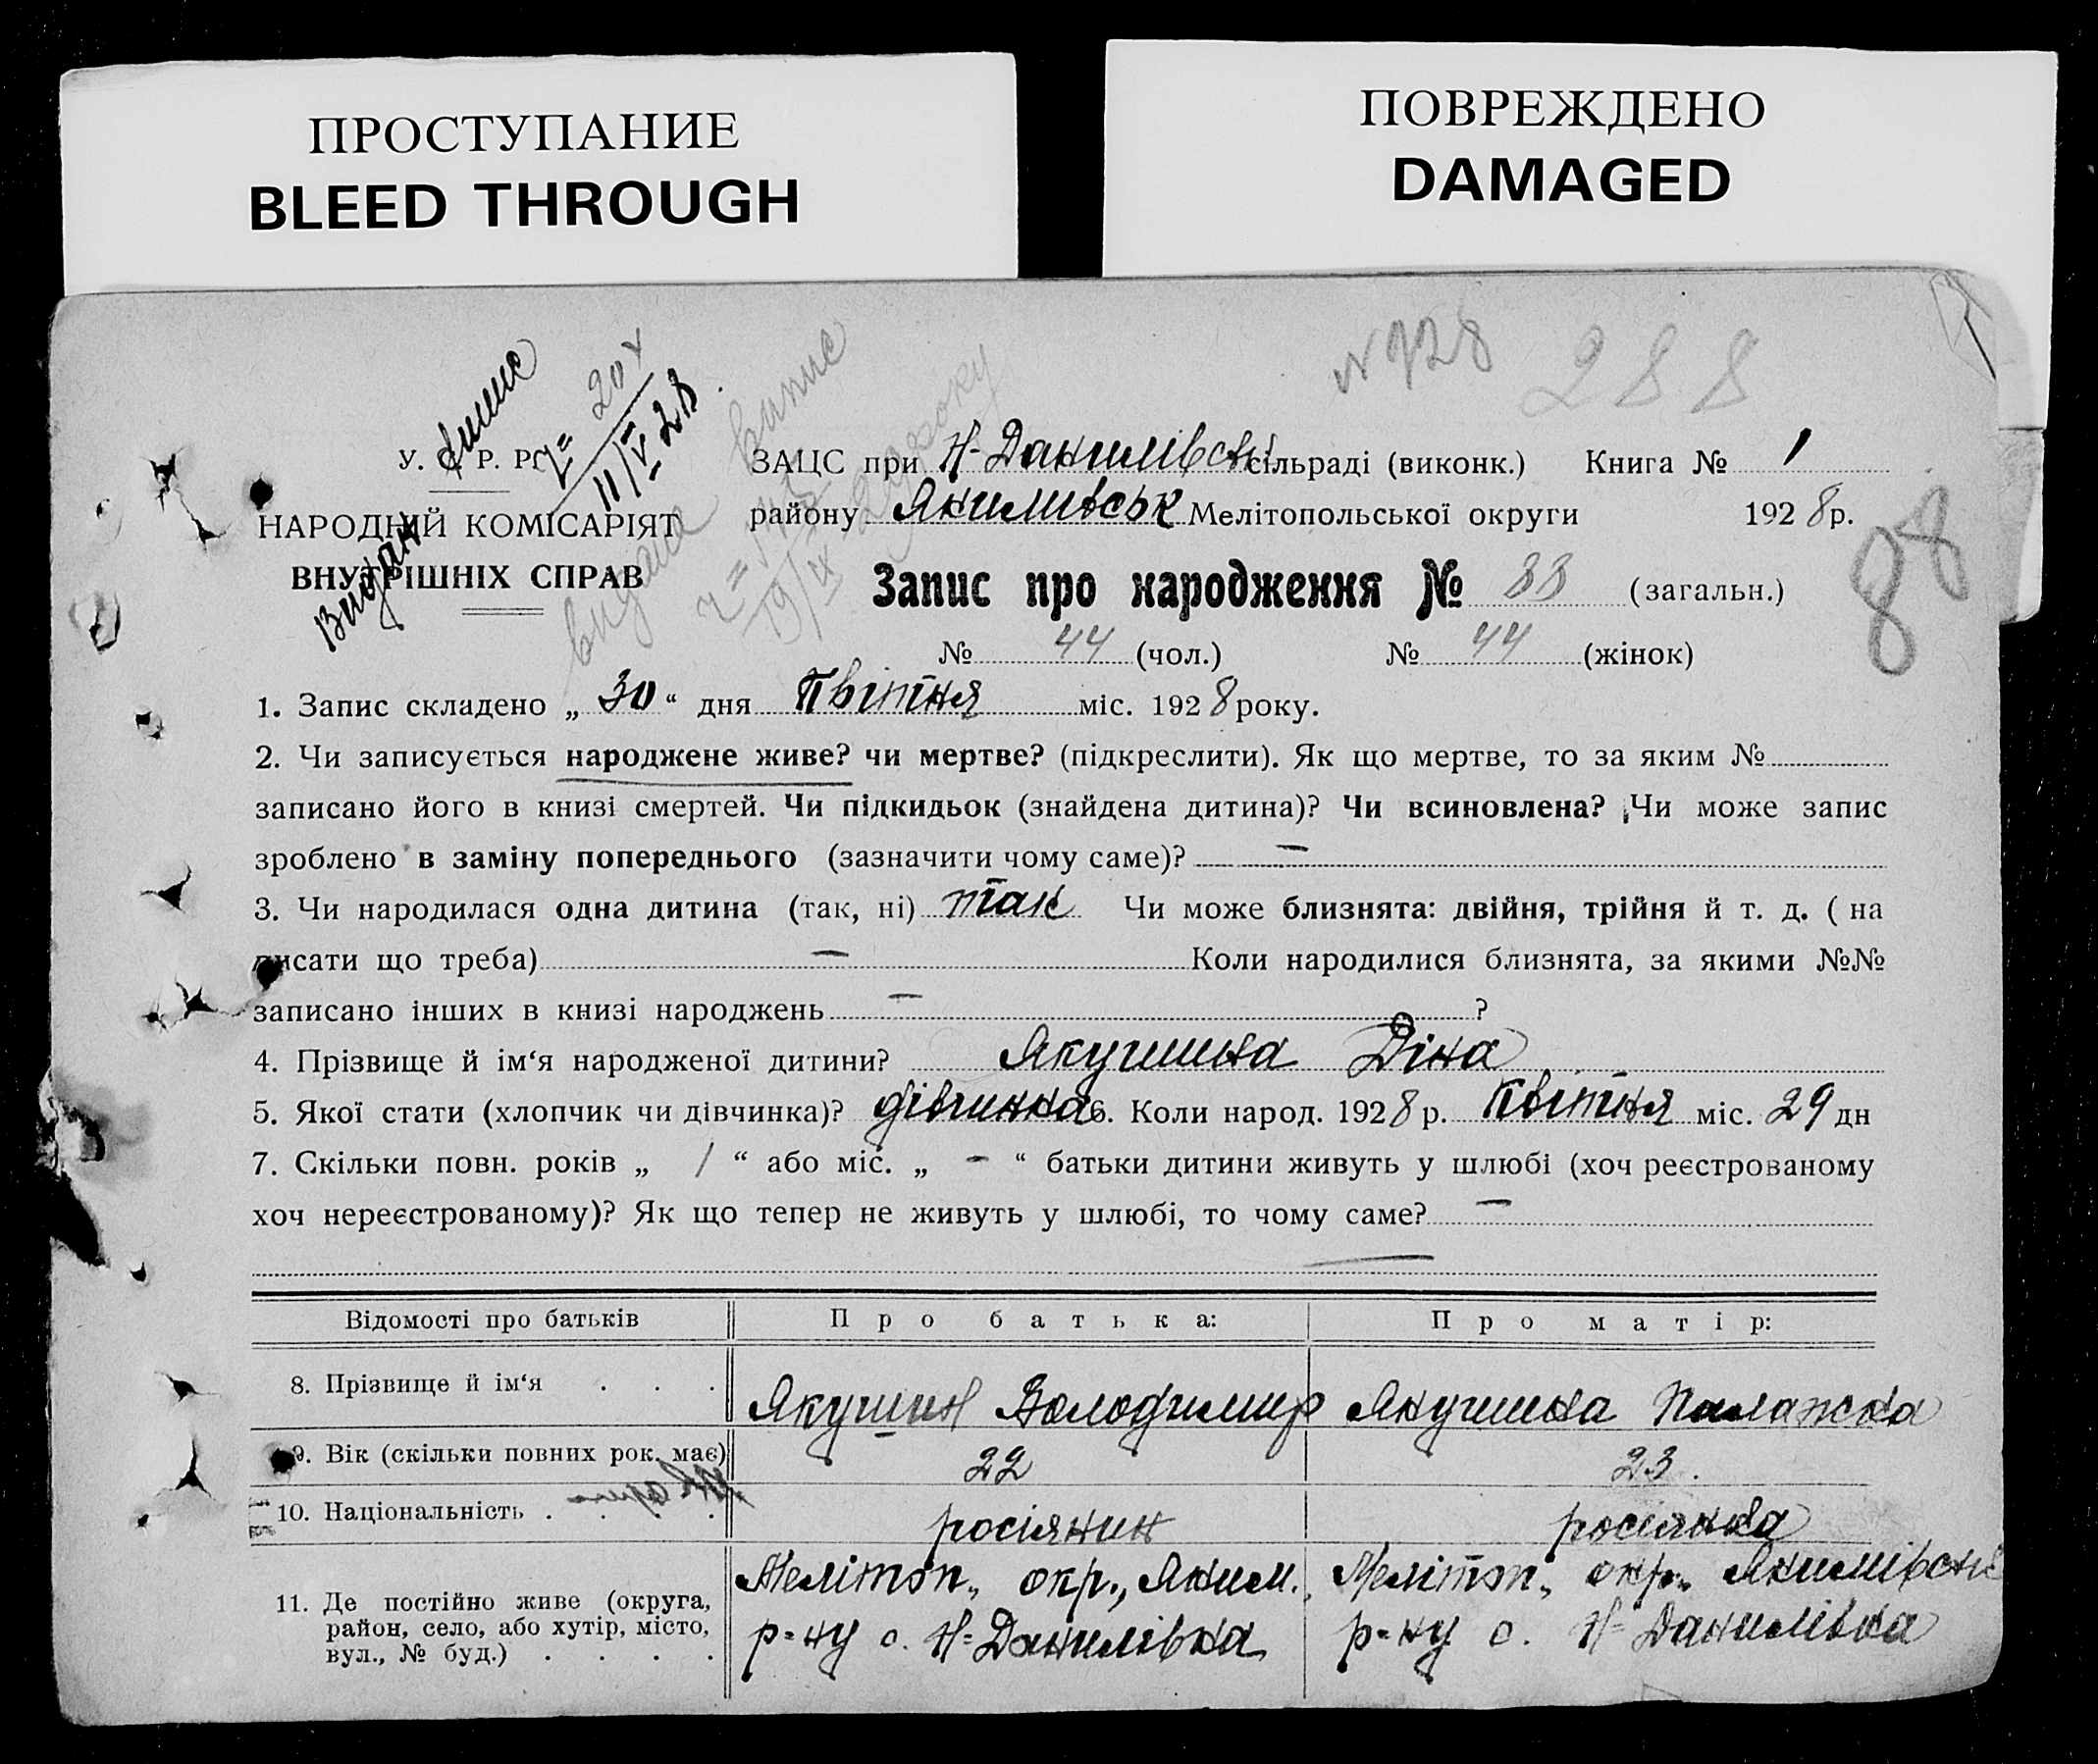 ПРОСТУПАНИЕ
BLEED THROUGH
ПОВРЕЖДЕНО
DAMAGED
N 728 288
Випис
У. С. Р. Р.
11/V 28
Видан
НАРОДНІЙ КОМІСАРІЯТ
ВНУТРІШНІХ СПРАВ
видана випис
19/IX 29 року
ЗАЦС при Н-Данилівській сільраді (виконк.) Книга № 1
району Якимивськ Мелітопольської округи 1928 р.
88
Запис про народження № 88 (загальн.)
№ 44 (чол.) № 44 (жінок)
1. Запис складено „ 30 “ дня Квітня міс. 1928 року.
2. Чи записується народжене живе? чи мертве? (підкреслити). Як що мертве, то за яким №
записано його в книзі смертей. Чи підкидьок (знайдена дитина)? Чи всиновлена? Чи може запис
зроблено в заміну попереднього (зазначити чому саме)? —
3. Чи народилася одна дитина (так, ні) так Чи може близнята: двійня, трійня й т. д. ( на
писати що треба) — Коли народилися близнята, за якими №№
записано інших в книзі народжень — ?
4. Прізвище й ім‘я народженої дитини? Якушина Діна
5. Якої стати (хлопчик чи дівчинка)? дівчинка 6. Коли народ. 1928 р. Квітня міс. 29 дн
7. Скільки повн. років „ 1 “ або міс. „ - “ батьки дитини живуть у шлюбі (хоч реєстрованому
хоч нереєстрованому)? Як що тепер не живуть у шлюбі, то чому саме? —
Відомості про батьків Про батька: Про матір:
8. Прізвище й ім‘я . . . Якушин Володимир Якушина Палажка
9. Вік (скільки повних рок. має) 22 23.
10. Національність . . . . росіянин росіянка
11. Де постійно живе (округа, район, село, або хутір, місто, вул., № буд.) . . . .
Мелітоп., окр., Яким.
р-ну с. Н-Данилівка
Мелітоп., окр., Якимівськ
р-ну с. Н-Данилівка